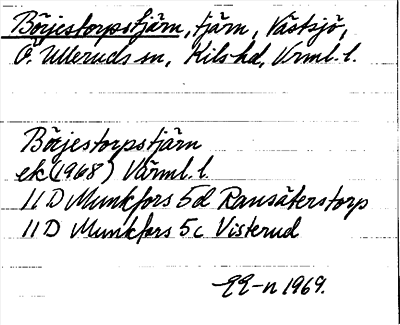 Börjestorpstjärn, tjärn, Västsjö,
Ö. Ulleruds sn, Kils hd, Vrml. l.
Börjestorpstjärn
ek (1968) Värml. l.
11 D Munkfors 5d Ransäterstorp
11 D Munkfors 5c Visterud
EE-n 1969.